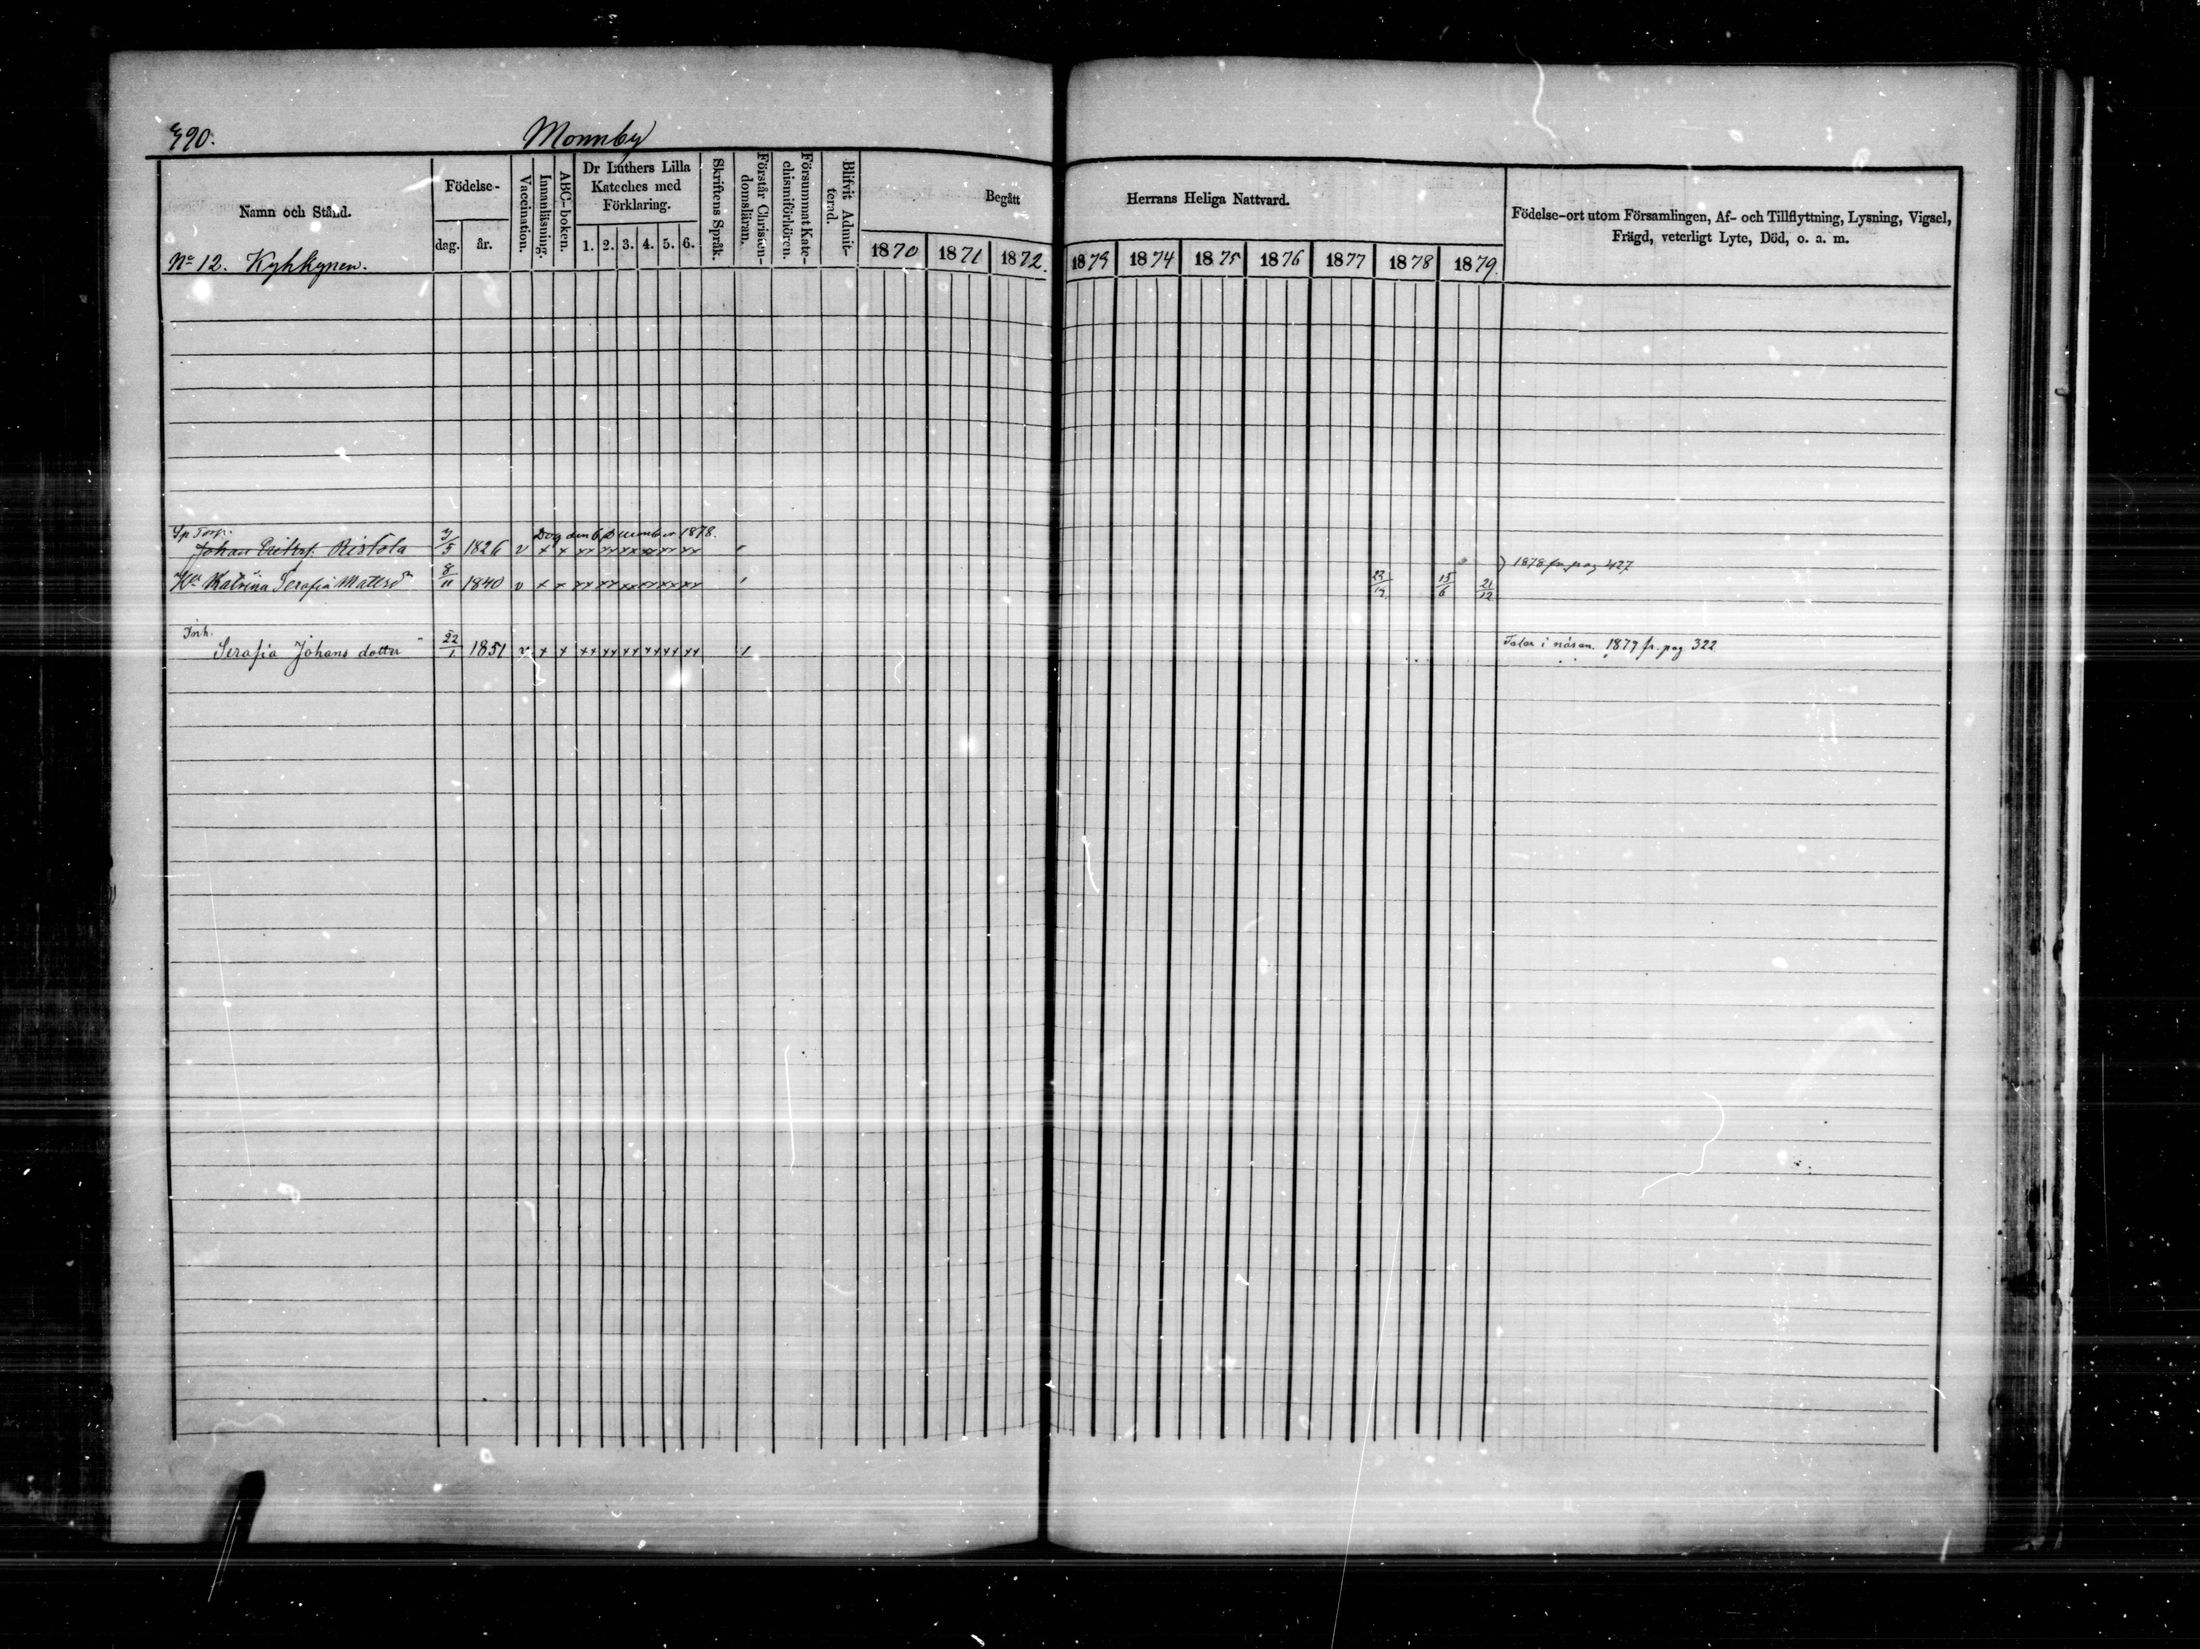 490.
Monnby
Namn och Stånd.
Födelse-
dag.
år.
Vaccination.
Innanläsning.
ABC-boken.
Dr Luthers Lilla
Kateches med
Förklaring.
1. 2. 3. 4. 5. 6.
Skriftens Språk.
Förstår Christen-
domsläran.
Försummat Kate-
chismiförhören.
Blifvit Admit-
terad.
Begått
Herrans Heliga Nattvard.
1870 1871 1872. 1873 1874 1875 1876 1877 1878 1879.
Födelse-ort utom Församlingen, Af- och Tillflyttning, Lysning, Vigsel,
Frägd, veterligt Lyte, Död, o. s. m.
No 12. Kyhkynen.
Sp Torp.
Dog den 6 December 1878.
Johan Ristola 1826 v x x xx xx xx xx xx xx
1878 fr. pag 427
Hu Katrina Serafia Mattsdr 8/11 1840 v x x xx xx xx xx xx xx 15/6 21/12
Inh.
Serafia Johans dotter 22/1 1851 v x x xx xx xx xx xx xx Talar i näsan. 1879 fr. pag 322